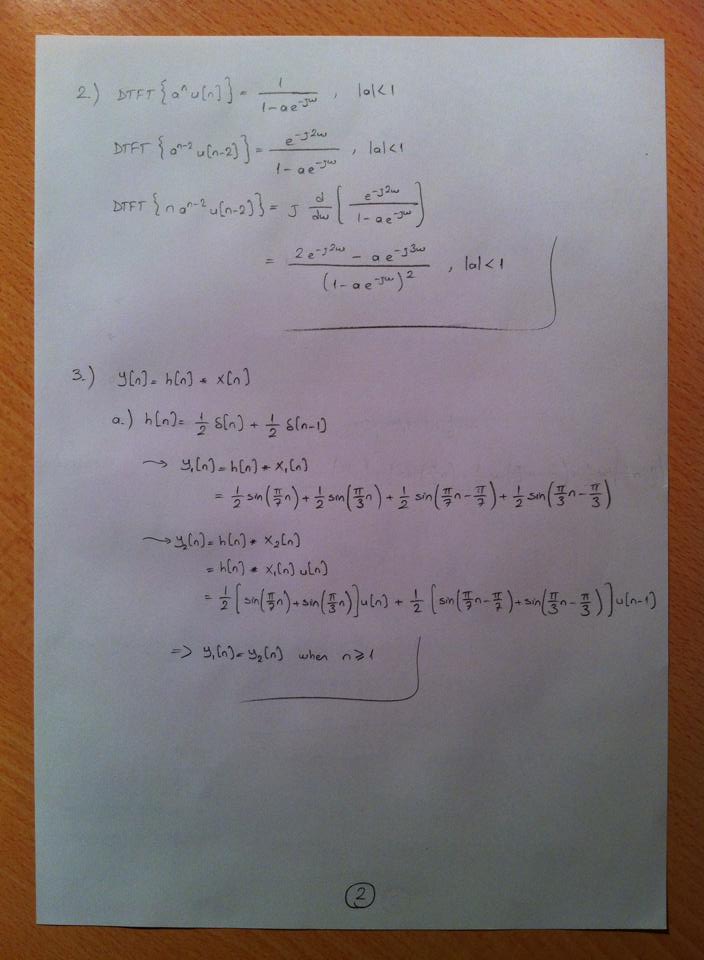 2.) DTFT {aⁿ u[n]} = 1/(1-ae^-jω) , |a|<1
DTFT {a^n-2 u[n-2]} = e^-j2ω/(1-ae^-jω) , |a|<1
DTFT {n a^n-2 u[n-2]} = j d/dω [e^-j2ω/(1-ae^-jω)]
= (2e^-j2ω - ae^-j3ω)/(1-ae^-jω)² , |a|<1
3.) y[n] = h[n] * x[n]
a.) h[n] = 1/2 δ[n] + 1/2 δ[n-1]
→ y₁[n] = h[n] * x₁[n]
= 1/2 sin(π/7 n) + 1/2 sin(π/3 n) + 1/2 sin(π/7 n - π/7) + 1/2 sin(π/3 n - π/3)
→ y₂[n] = h[n] * x₂[n]
= h[n] * x₁[n] u[n]
= 1/2 [sin(π/7 n) + sin(π/3 n)] u[n] + 1/2 [sin(π/7 n - π/7) + sin(π/3 n - π/3)] u[n-1]
=> y₁[n] = y₂[n] when n ≥ 1
2